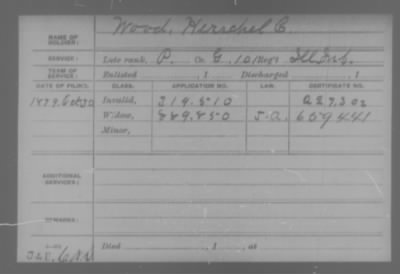 NAME OF SOLDIER: Wood, Herschel C.
SERVICE: Late rank, P. Co. G, 101 Reg't Ill Inf.
TERM OF SERVICE: Enlisted , 1 Discharged , 1
DATE OF FILING. CLASS. APPLICATION NO. LAW. CERTIFICATE NO.
1879 Invalid, 319.810
Widow, 889.850 S.A. 659441
Minor,
ADDITIONAL SERVICES:
REMARKS:
Died , 1 , at